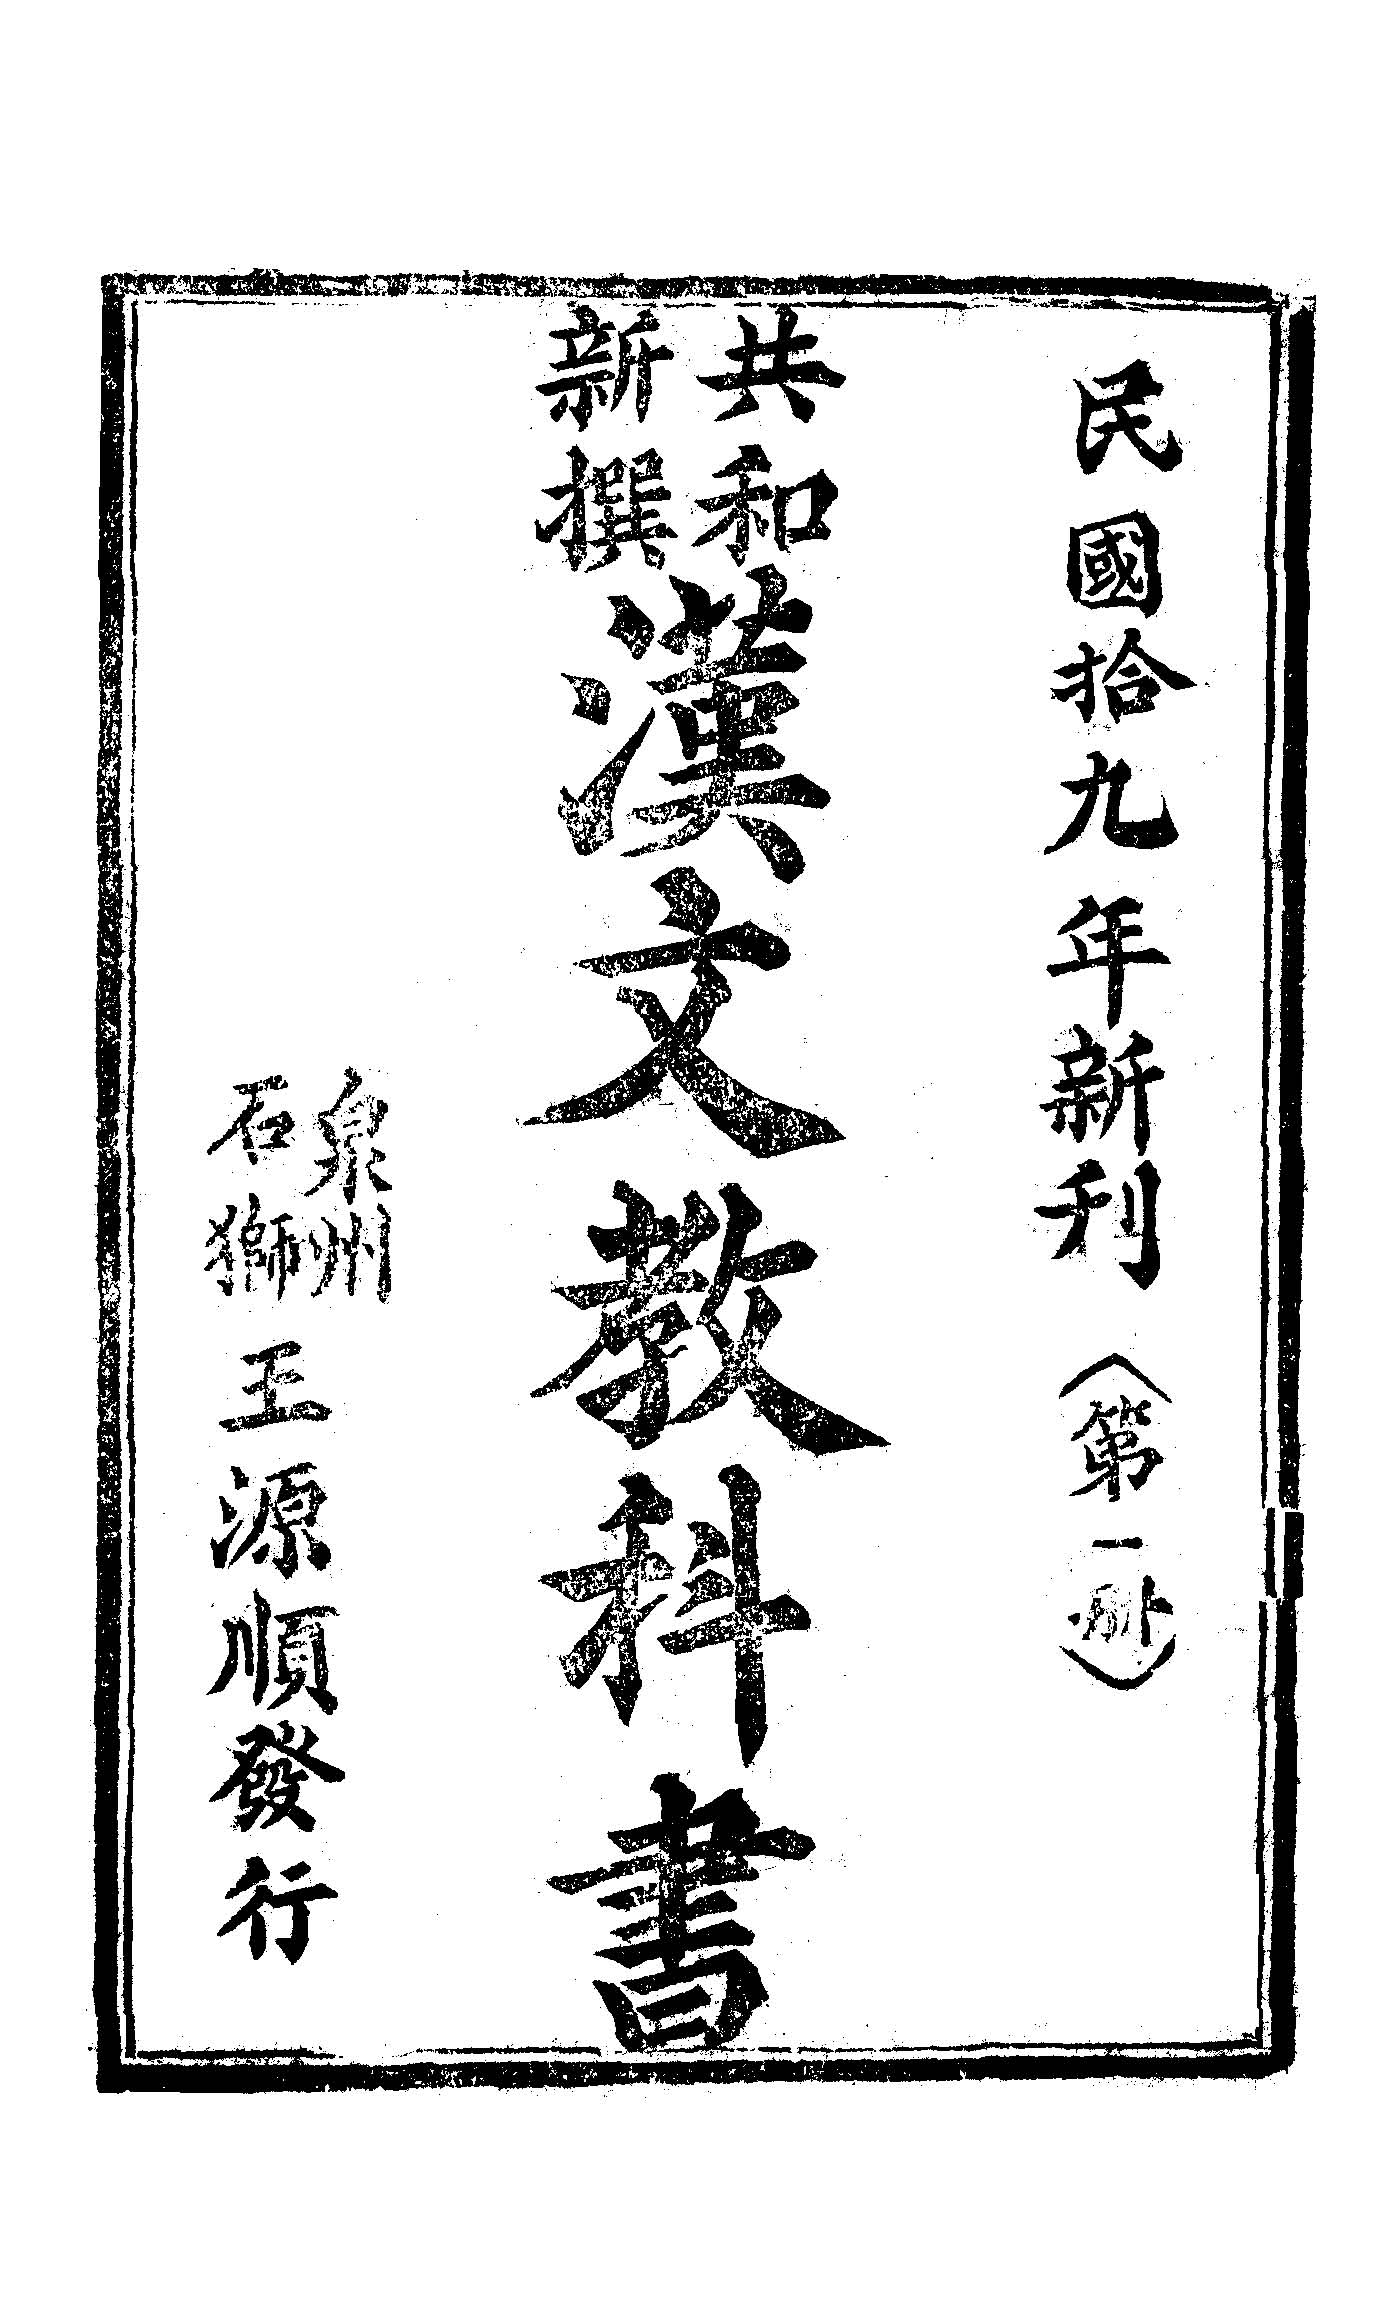 民國拾九年新利（第一册）
共和新撰漢文教科書
泉州石獅王源順發行